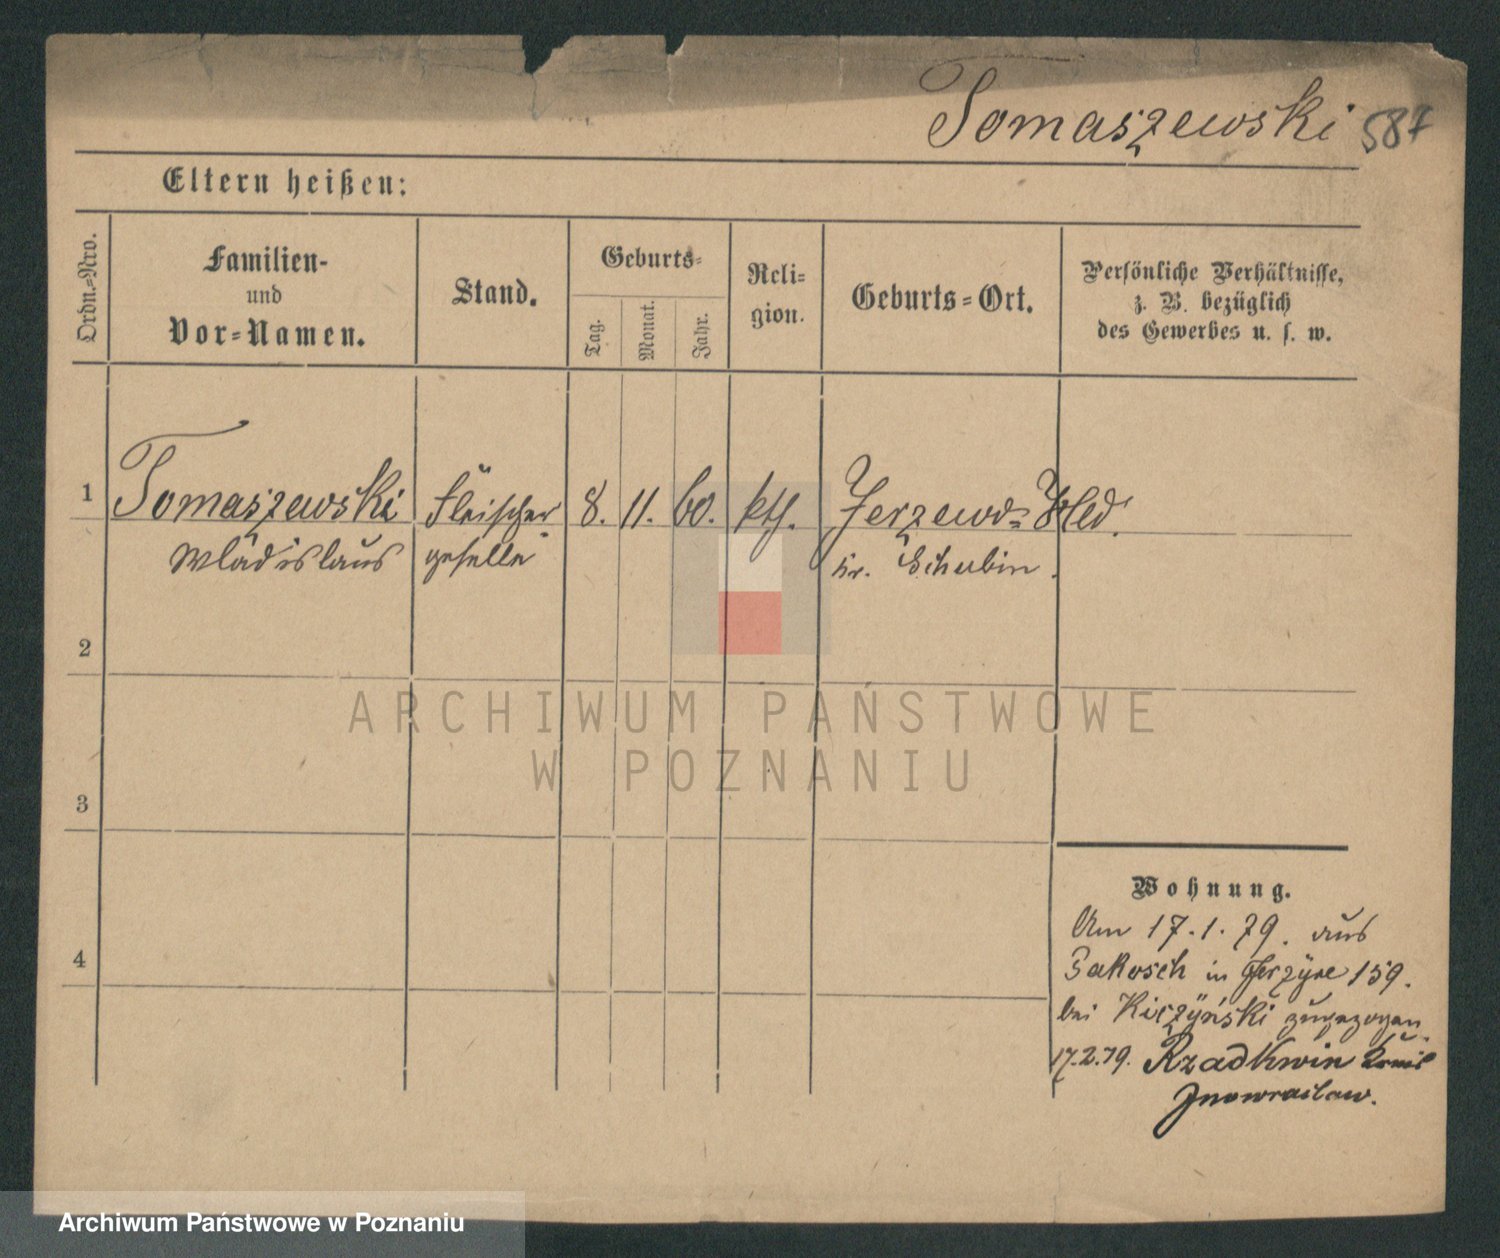 Tomaszewski 587
Eltern heißen:
Ordn.-Nro.
Familien-
und
Vor-Namen.
Stand.
Geburts-
Tag.
Monat.
Jahr.
Reli-
gion.
Geburts-Ort.
Persönliche Verhältnisse,
z. B. bezüglich
des Gewerbes u. s. w.
1 Tomaszewski Fleischer 8. 11. 60. kth. Jerzewo- Hld.
Wladislaus geselle Kr. Schubin.
2
3
4
Wohnung.
Am 17.1.79. aus
Pakosch in Jerzyce 159.
bei Kiczyński zugezogen.
17.2.79. Rzadkwin Kreis
Inowraclaw.
ARCHIWUM PAŃSTWOWE
W POZNANIU
Archiwum Państwowe w Poznaniu